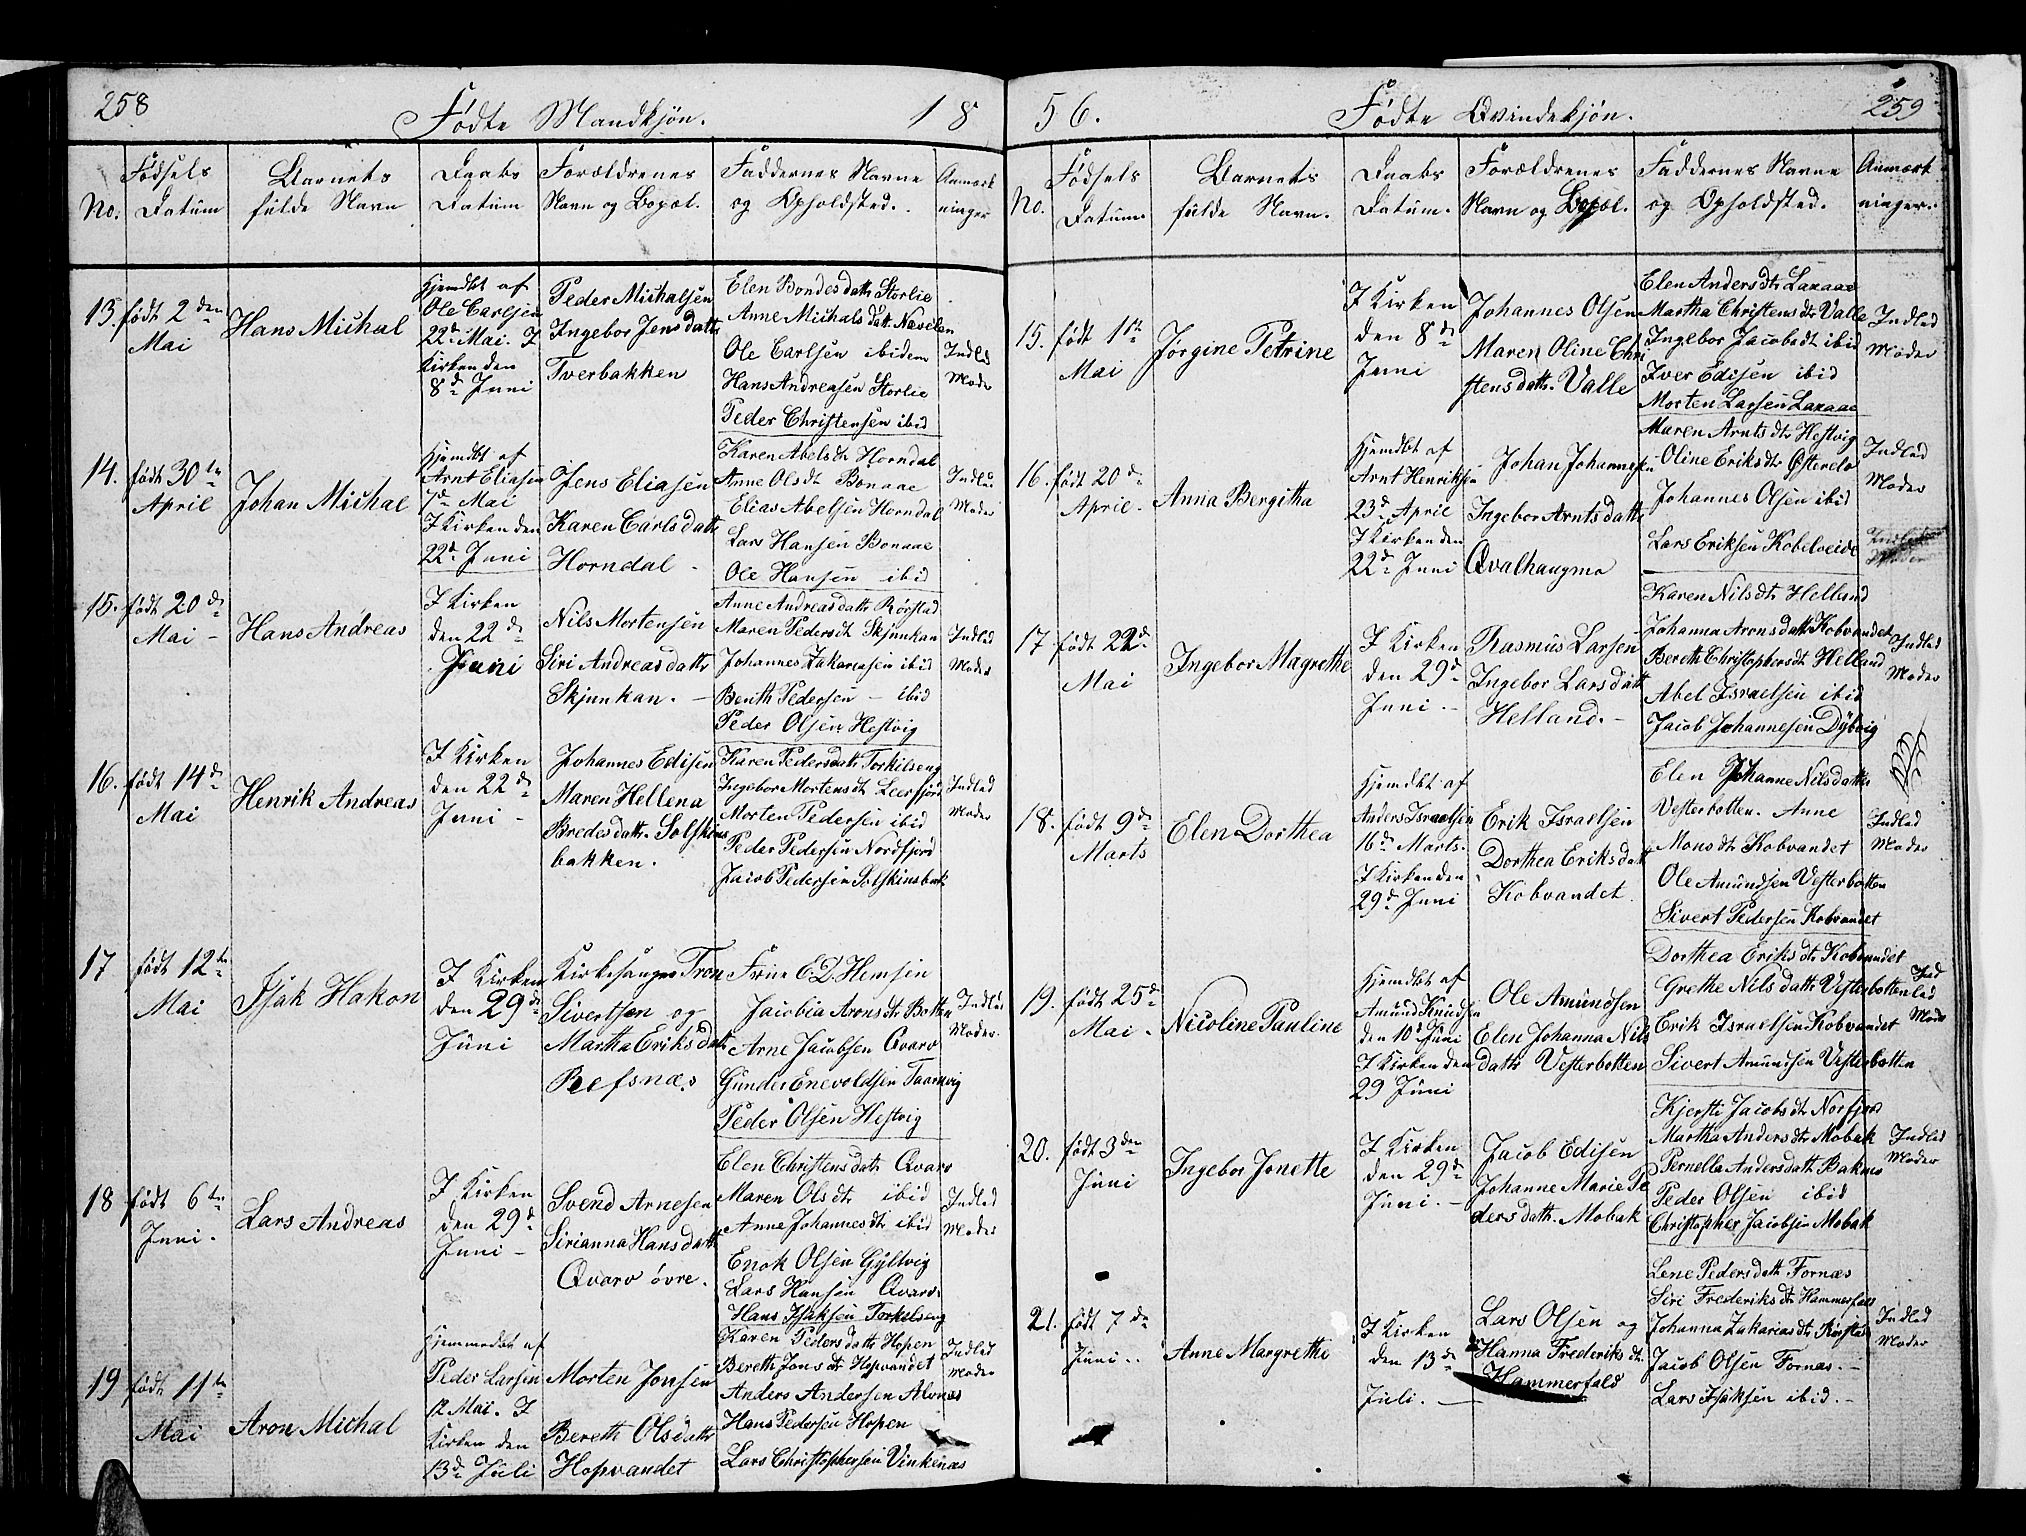 258
Fødte Mandkjøn.
18
No.
Fødsels Datum
Barnets fulde Navn
Daabs Datum
Forældrenes Navn og Bopæl.
Faddernes Navne og Opholdsted.
Anmærkninger
13.
født 2den
Mai
Hans Michal
Hjemdbt af
Ole Carlsen
22de Mai. I
Kirken den
8de Juni
Peder Michalsen
Ingebor Jensdattr
Tverbakken
Elen Bondesdattr Storlie
Anne Michalsdatt Nævelen
Ole Carlsen ibidem
Hans Andreasen Storlie
Peder Christensen ibid
Indled
Moder
14.
født 30te
April
Johan Michal
Hjemdbt af
Arnt Eliasen
7de Mai
I Kirken den
22de Juni
Jens Eliasen
Karen Carlsdattr
Horndal
Karen Abelsdtr Horndal
Anne Olsdt Bonaae
Elias Abelsen Horndal
Lars Hansen Bonaae
Ole Hansen ibid
Indled
Moder
15.
født 20de
Mai
Hans Andreas
I Kirken
den 22de
Juni
Nils Mortensen
Siri Andreasdattr
Skjunkan.
Anne Andreasdattr Rørstad
Maren Pedersdt Skjunkan
Johannes Zakariasen ibid
Benth Pedersen - ibid
Peder Olsen Hestvig
Indled
Moder
16.
født 14de
Mai
Henrik Andreas
I Kirken
den 22de
Juni
Johannes Edisen
Maren Hellena
Bredesdattr Solskins
bakken.
Karen Pedersdattr Torkilseng
Ingebor Mortensdt Leerfjord
Morten Pedersen ibid
Peder Pedersen Nordfjord
Jacob Pedersen Solskinsbak
Indled
Moder
17
født 12te
Mai
Isak Hakon
I Kirken
den 29de
Juni
Kirkesanger Tron
Sivertsen og
Martha Eriksdatt
Refsnæs
Frue E. D. Hemsen
Jacobia Aronsdtr Botten
Arne Jacobsen Qvarv
Gunder Enevoldsen Taarnvig
Peder Olsen Hestvig
Indled
Moder
18
født 6te
Juni.
Lars Andreas
I Kirken
den 29de
Juni
Svend Arnesen
Sirianna Hansdatt
Qvarv øvre.
Elen Christensdatr Qvarv
Maren Olsdtr ibid
Anne Johannesdtr ibid
Enok Olsen Gyltvig
Lars Hansen Qvarv
Hans Isaksen Torkelseng
Indled
Moder
19
født 11te
Mai
Aron Michal
Hjemmedbt af
Peder Larsen
12 Mai. I
Kirken den
13de Juli
Morten Jonsen
Bereth Olsdattr
Hopvandet
Karen Pedersdattr Hopen
Bereth Jonsdtr Hopvandet
Anders Andersen Alvnæs
Hans Pedersen Hopen
Lars Christophersen Vinkenæs
Indled
Moder
56.
Fødte Qvindekjøn.
259
No.
Fødsels Datum.
Barnets fulde Navn.
Daabs Datum.
Forældrenes Navn og Bopæl.
Faddernes Navne og Opholdsted.
Anmærkninger.
15.
født 1ste
Mai
Jørgine Petrine
I Kirken
den 8de
Juni
Johannes Olsen
Maren Oline Chri
stensdattr. Valle
Elen Andersdtr Laxaae
Martha Christensdtr Valle
Ingebor Jacobsdt ibid
Iver Edisen ibid
Morten Larsen Laxaae
Indled
Moder
16.
født 20de
April.
Anna Bergitha
Hjemdbt af
Arnt Henriksen
23de April
I Kirken den
22de Juni
Johan Johannesen
Ingebor Arntsdattr
Qvalhaugmo
Maren Arntsdtr Hestvig
Oline Eriksdtr Østerelv
Johannes Olsen ibid
Lars Eriksen Kobelveide
Indled
Moder
17
født 22de
Mai
Ingebor Magrethe
I Kirken
den 29de
Juni.
Rasmus Larsen
Ingebor Larsdatt
Helland.
Karen Nilsdtr Helland
Johanna Aronsdattr Kobvandet
Bereth Christophersdt Helland
Abel Israelsen ibid
Jacob Johannesen Dybvig
Indled
Moder
18.
født 9de
Marts
Elen Dorthea
Hjemdbt af
Anders Israelsen
16de Marts.
I Kirken den
29de Juni
Erik Israelsen
Dorthea Eriksdatt
Kobvandet
Elen Johanne Nilsdattr
Vesterbotten. Anne
Monsdtr Kobvandet
Ole Amundsen Vesterbotten
Sivert Pedersen Kobvandet
Indled
Moder
19.
født 25de
Mai
Nicoline Pauline
Hjemdbt af
Amund Knudsen
den 10de Juni
I Kirken den
29 Juni
Ole Amundsen
Elen Johanna Nils
dattr Vesterbotten
Dorthea Eriksdtr Kobvandet
Grethe Nilsdattr Vesterbotten
Erik Israelsen Kobvandet
Sivert Amundsen Vesterbotten
Ind
led
Mode
20.
født 3den
Juni
Ingebor Jonette
I Kirken
den 29de
Juni.
Jacob Edisen
Johanne Marie Pe
dersdattr. Mobak
Kjersti Jacobsdtr Norfjord
Martha Andersdtr Mobak
Pernella Andersdatt Bakmo
Peder Olsen ibid
Christopher Jacobsen Mobak
Indled
Moder
21.
født 7de
Juni.
Anne Margrethe
I Kirken
den 13de
Juli.
Lars Olsen og
Hanna Frederiksdtr
Hammerfald
Lene Pedersdatt Fornæs
Siri Frederiksdtr Hammerfald
Johanna Zakariasdtr Rørstad
Jacob Olsen Fornæs.
Lars Isaksen ibid.
Indled
Moder